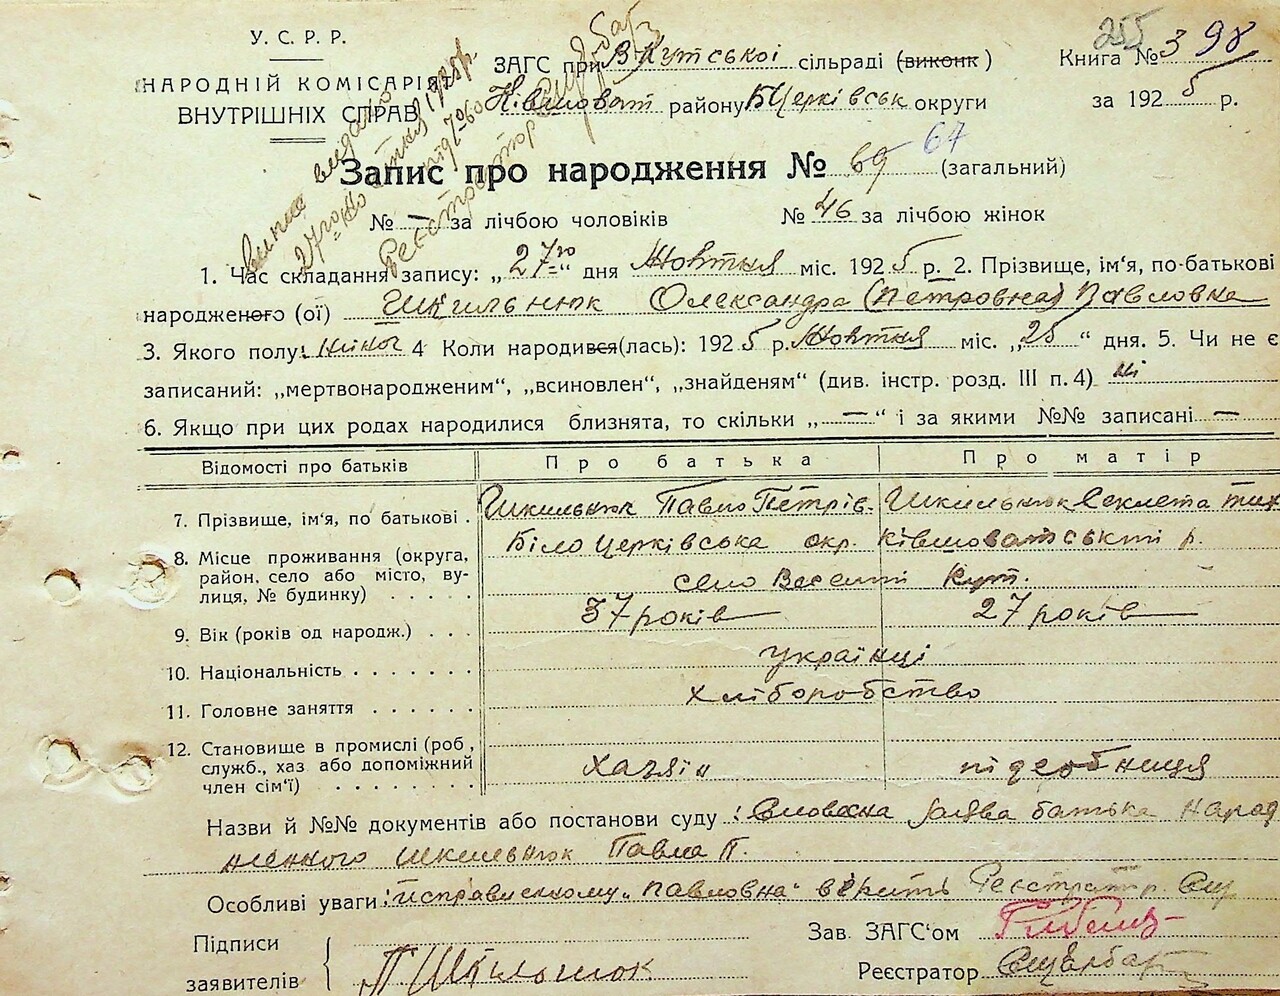 У. С. Р. Р.
НАРОДНІЙ КОМІСАРІЯТ
ВНУТРІШНІХ СПРАВ
ЗАГС при В Кутської сільраді (виконк)
району БЦерківськ округи
255
Книга № 398
за 1925 р.
Запис про народження № 69 67 (загальний)
№ — за лічбою чоловіків № 46 за лічбою жінок
1. Час складання запису: „27го“ дня Жовтня міс. 1925 р. 2. Прізвище, ім'я, по-батькові
народженого (ої) Шкильнюк Олександра (Петровна) Павловна
3. Якого полу: жіноч 4 Коли народився(лась): 1925 р. Жовтня міс. „25“ дня. 5. Чи не є
записаний: „мертвонародженим“, „всиновлен“, „знайденям“ (див. інстр. розд. III п. 4) ні
6. Якщо при цих родах народилися близнята, то скільки „—“ і за якими №№ записані —
Відомості про батьків Про батька Про матір
7. Прізвище, ім'я, по батькові . Шкильнюк Павло Петрів. Шкильнюк Векleта Тих
8. Місце проживання (округа, район, село або місто, вулиця, № будинку) . . . . . Біло Церківська окр. Ківшоватський р.
село Веселий Кут.
9. Вік (років од народж.) . . . 37 років 27 років
10. Національність . . . . . . . українці
11. Головне заняття . . . . . . хліборобство
12. Становище в промислі (роб, служб., хаз або допоміжний член сім'ї) . . . . . . . . хазяїн
Назви й №№ документів або постанови суду : Словесна заява батька нарад
женного Шкильнюк Павла П.
Особливі уваги: исправленному „Павловна“ верить Реєстратр.
Підписи
заявителів
П Шкильнюк
Зав. ЗАГС'ом
Реєстратор